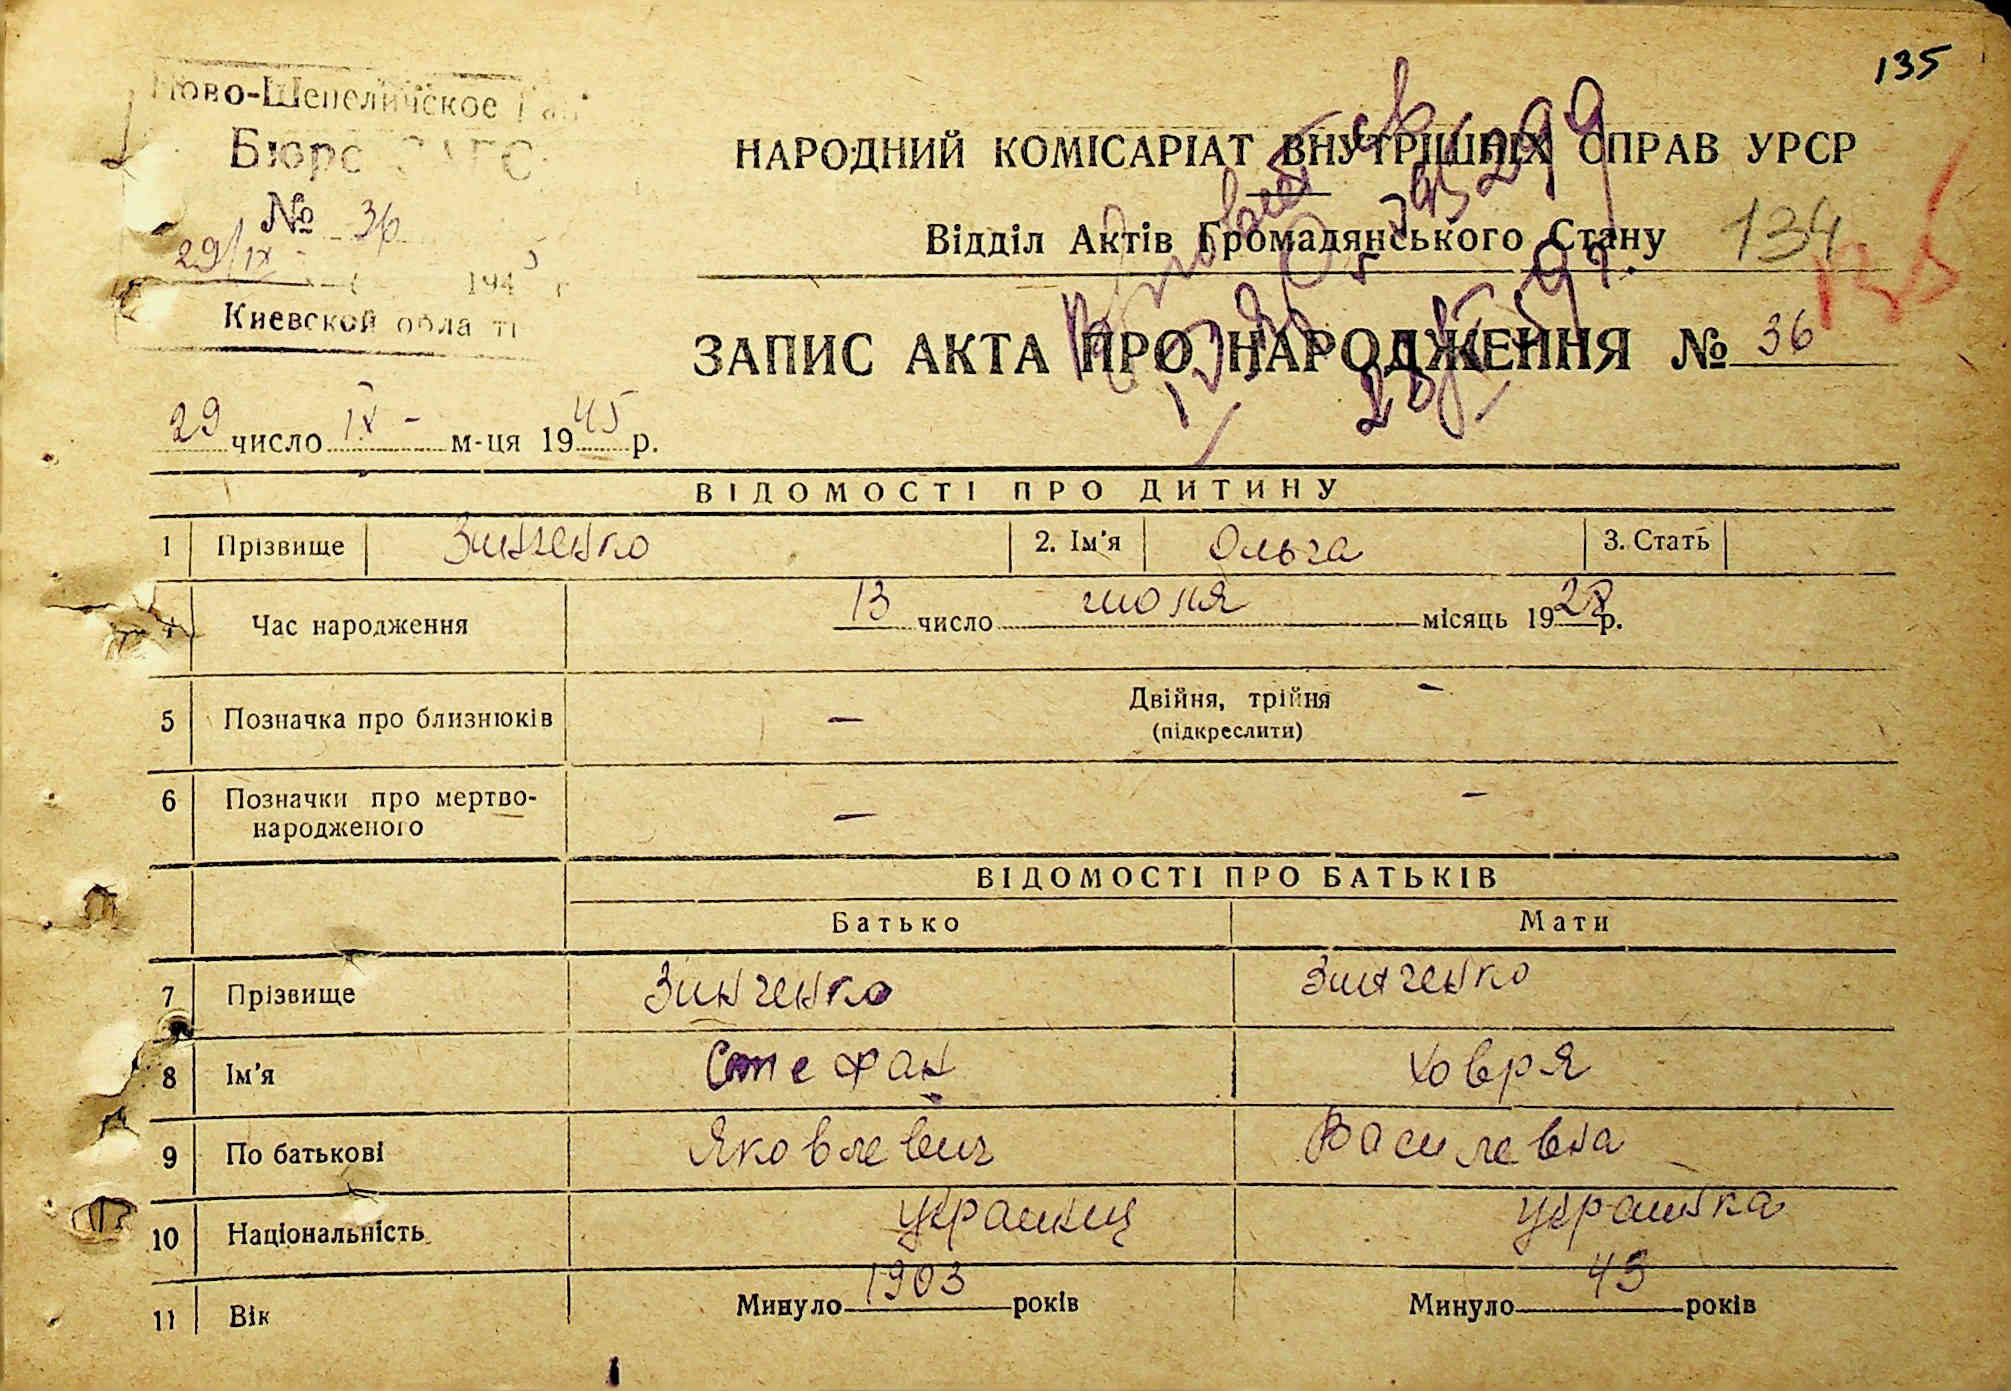 135
Ново-Шепеличское
Бюро ЗАГС
№ 36
29/IX - 1945 г
Киевской обла ті
НАРОДНИЙ КОМІСАРІАТ ВНУТРІШНІХ СПРАВ УРСР
Відділ Актів Громадянського Стану
134
ЗАПИС АКТА ПРО НАРОДЖЕННЯ № 36
29 число IX - м-ця 1945 р.
ВІДОМОСТІ ПРО ДИТИНУ
1 Прізвище Зинченко 2. Ім'я Ольга 3. Стать
4 Час народження 13 число июля місяць 1928 р.
5 Позначка про близнюків — Двійня, трійня -
(підкреслити)
6 Позначки про мертво- — -
народженого
ВІДОМОСТІ ПРО БАТЬКІВ
Батько Мати
7 Прізвище Зинченко Зинченко
8 Ім'я Стефан Ховря
9 По батькові Яковлевич Василевна
10 Національність украинец украинка
11 Вік Минуло 1903 років Минуло 43 років